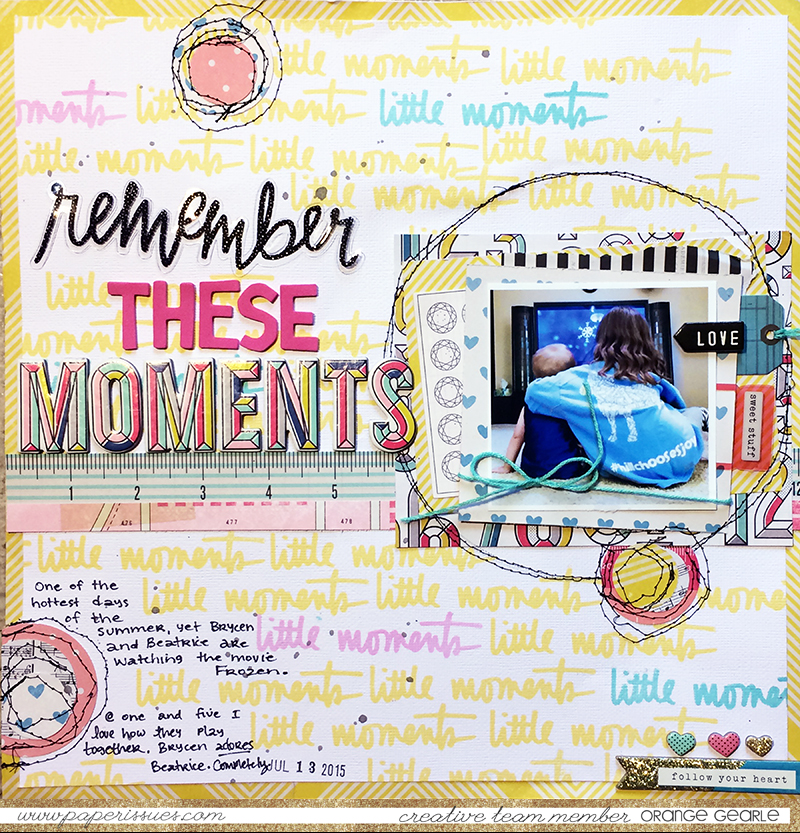 little moments little moments
oments little moments little moments
little moments little moments little moments
little moments
remember
little moments
THESE
MOMENTS
LOVE
sweet stuff
#hillchoosesjoy
1 2 3 4 5
426 477 478
12
little moments little moments
One of the
hottest days
of the
summer, yet Brycen
and Beatrice are
watching the movie
Frozen.
little moments little moments
little moments little moments
little moments little moments little momen
@ one and five I
love how they play
together. Brycen adores
Beatrice. Completely
JUL 13 2015
little moments little moments
follow your heart
www.paperissues.com
creative team member ORANGE GEARLE